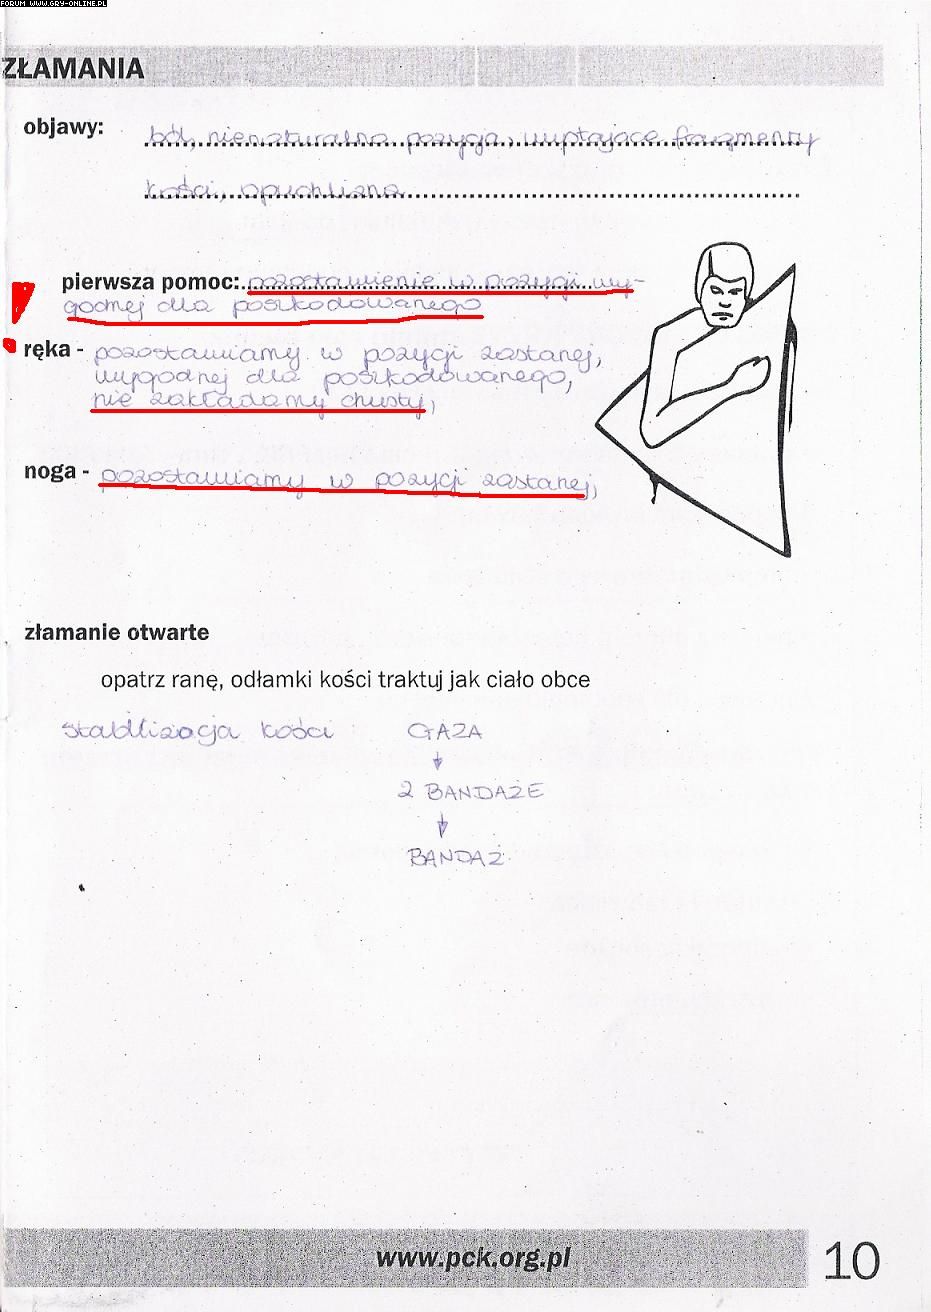 FORUM WWW.GRY-ONLINE.PL
ZŁAMANIA
objawy: ból, nienaturalna pozycja, wyptające fragmenty
kości, opuchlizna
pierwsza pomoc: pozostawienie w pozycji wy-
godnej dla poszkodowanego
ręka - pozostawiamy w pozycji zastanej,
wygodnej dla poszkodowanego,
nie zakładamy chusty,
noga - pozostawiamy w pozycji zastanej,
złamanie otwarte
opatrz ranę, odłamki kości traktuj jak ciało obce
stabilizacja kości GAZA
2 BANDAŻE
BANDAŻ
www.pck.org.pl 10